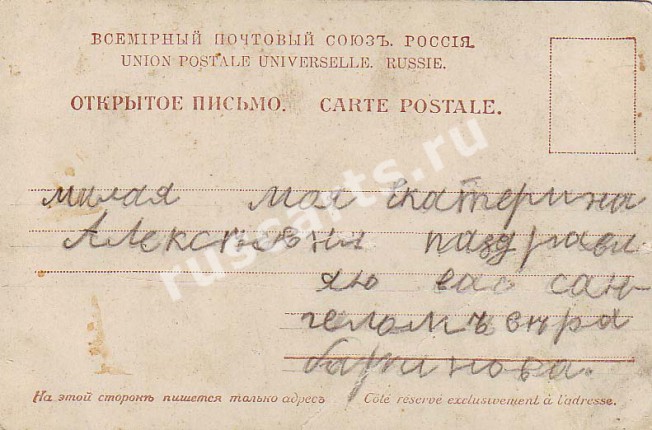 ВСЕМІРНЫЙ ПОЧТОВЫЙ СОЮЗЪ. РОССІЯ.
UNION POSTALE UNIVERSELLE. RUSSIE.
ОТКРЫТОЕ ПИСЬМО. CARTE POSTALE.
милая моя Екатерина
Алексѣвня паздравл
яю вас сан-
геломъ вѣра
russarts.ru
На этой сторонѣ пишется только адресъ Côté réservé exclusivement à l'adresse.